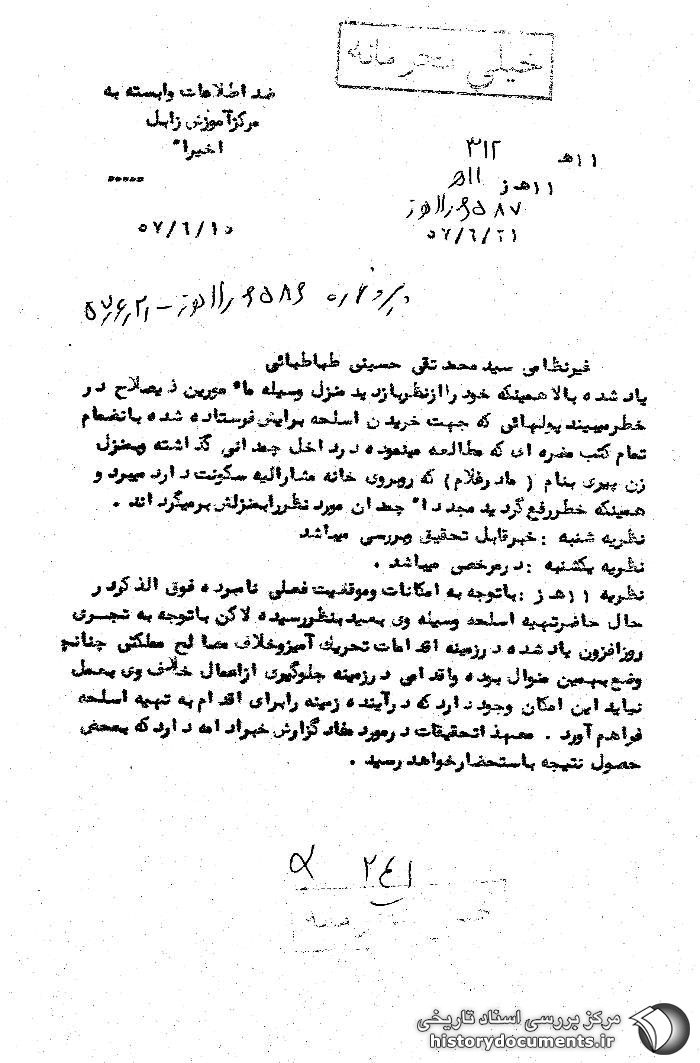 خیلی محرمانه
ضد اطلاعات وابسته به
مرکز آموزش زابل
اخیراً
-----
۵۷/۶/۱۵
۳۱۲
۱۱ه
۱۱ه
۱۱ه ز
۵۷/۶/۲۱
پیرو شماره
غیرنظامی سید محمد تقی حسینی طباطبائی
یاد شده بالا همینکه خود را از نظر بازدید منزل وسیله مأمورین ذیصلاح در
خطر میبیند پولهائی که جهت خریدن اسلحه برایش فرستاده شده بانضمام
تمام کتب مضره ای که مطالعه مینموده در داخل چمدانی گذاشته و بمنزل
زن پیری بنام ( مادر غلام ) که روبروی خانه مشارالیه سکونت دارد میبرد و
همینکه خطر رفع گردید مجدداً چمدان مورد نظر را بمنزلش برمیگرداند .
نظریه شنبه : خبر قابل تحقیق و بررسی میباشد
نظریه یکشنبه : در مرخصی میباشد .
نظریه ۱۱ه ز : باتوجه به امکانات و موقعیت فعلی نامبرده فوق الذکر در
حال حاضر تهیه اسلحه وسیله وی بعید بنظر رسیده لاکن باتوجه به تجری
روزافزون یاد شده در زمینه اقدامات تحریک آمیز و خلاف مصالح مملکتی چنانچه
وضع بهمین منوال بوده و اقدامی در زمینه جلوگیری از اعمال خلاف وی بعمل
نیاید این امکان وجود دارد که در آینده زمینه را برای اقدام به تهیه اسلحه
فراهم آورد . معهذا تحقیقات در مورد مفاد گزارش خبر ادامه دارد که بمحض
حصول نتیجه باستحضار خواهد رسید .
مرکز بررسی اسناد تاریخی
historydocuments.ir